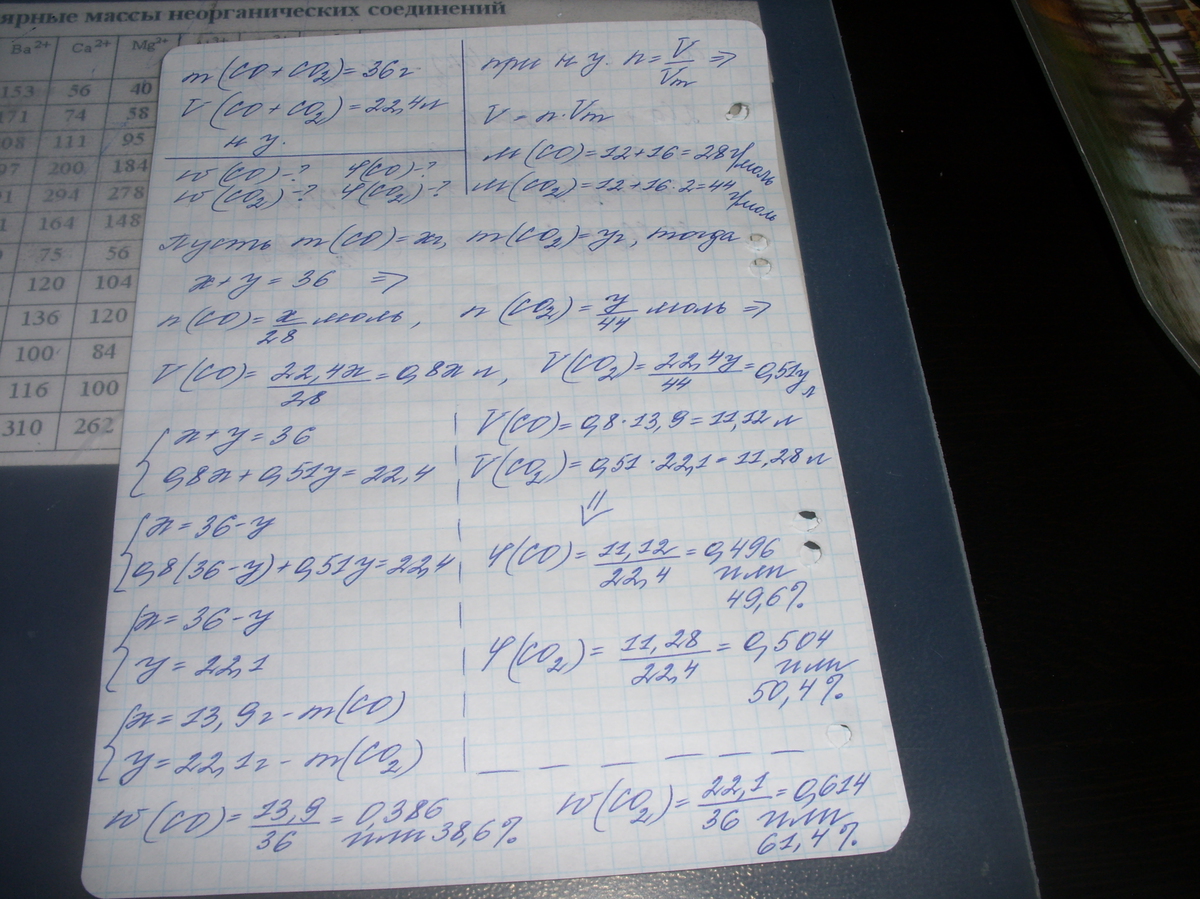 ярные массы неорганических соединений
Ba²⁺ Ca²⁺ Mg²⁺
153 56 40
171 74 58
08 111 95
97 200 184
91 294 278
1 164 148
75 56
120 104
136 120
100 84
116 100
310 262
m(CO+CO₂)=36г
V(CO+CO₂)=22,4л
н у.
w(CO)-? φ(CO)-?
w(CO₂)-? φ(CO₂)-?
при н у. n=V/Vm ⇒
V=n·Vm
M(CO)=12+16=28г/моль
M(CO₂)=12+16·2=44г/моль
Пусть m(CO)=xг, m(CO₂)=yг, тогда
x+y=36 ⇒
n(CO)=x/28 моль, n(CO₂)=y/44 моль ⇒
V(CO)=22,4x/28=0,8x л, V(CO₂)=22,4y/44=0,51y л
{x+y=36
0,8x+0,51y=22,4
{x=36-y
0,8(36-y)+0,51y=22,4
{x=36-y
y=22,1
{x=13,9г-m(CO)
y=22,1г-m(CO₂)
V(CO)=0,8·13,9=11,12л
V(CO₂)=0,51·22,1=11,28л
⇓
φ(CO)=11,12/22,4=0,496
или
49,6%
φ(CO₂)=11,28/22,4=0,504
или
50,4%
w(CO)=13,9/36=0,386
или 38,6%
w(CO₂)=22,1/36=0,614
или
61,4%